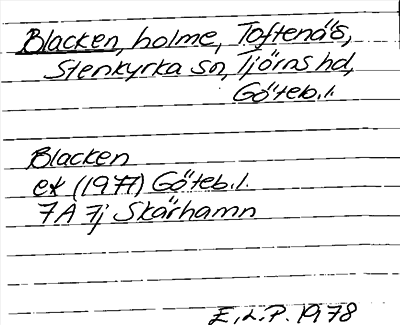 Blacken, holme, Toftenäs,
Stenkyrka sn, Tjörns hd,
Göteb.l.
Blacken
ek (1977) Göteb.l.
7A 7j Skärhamn
E.L.P. 1978